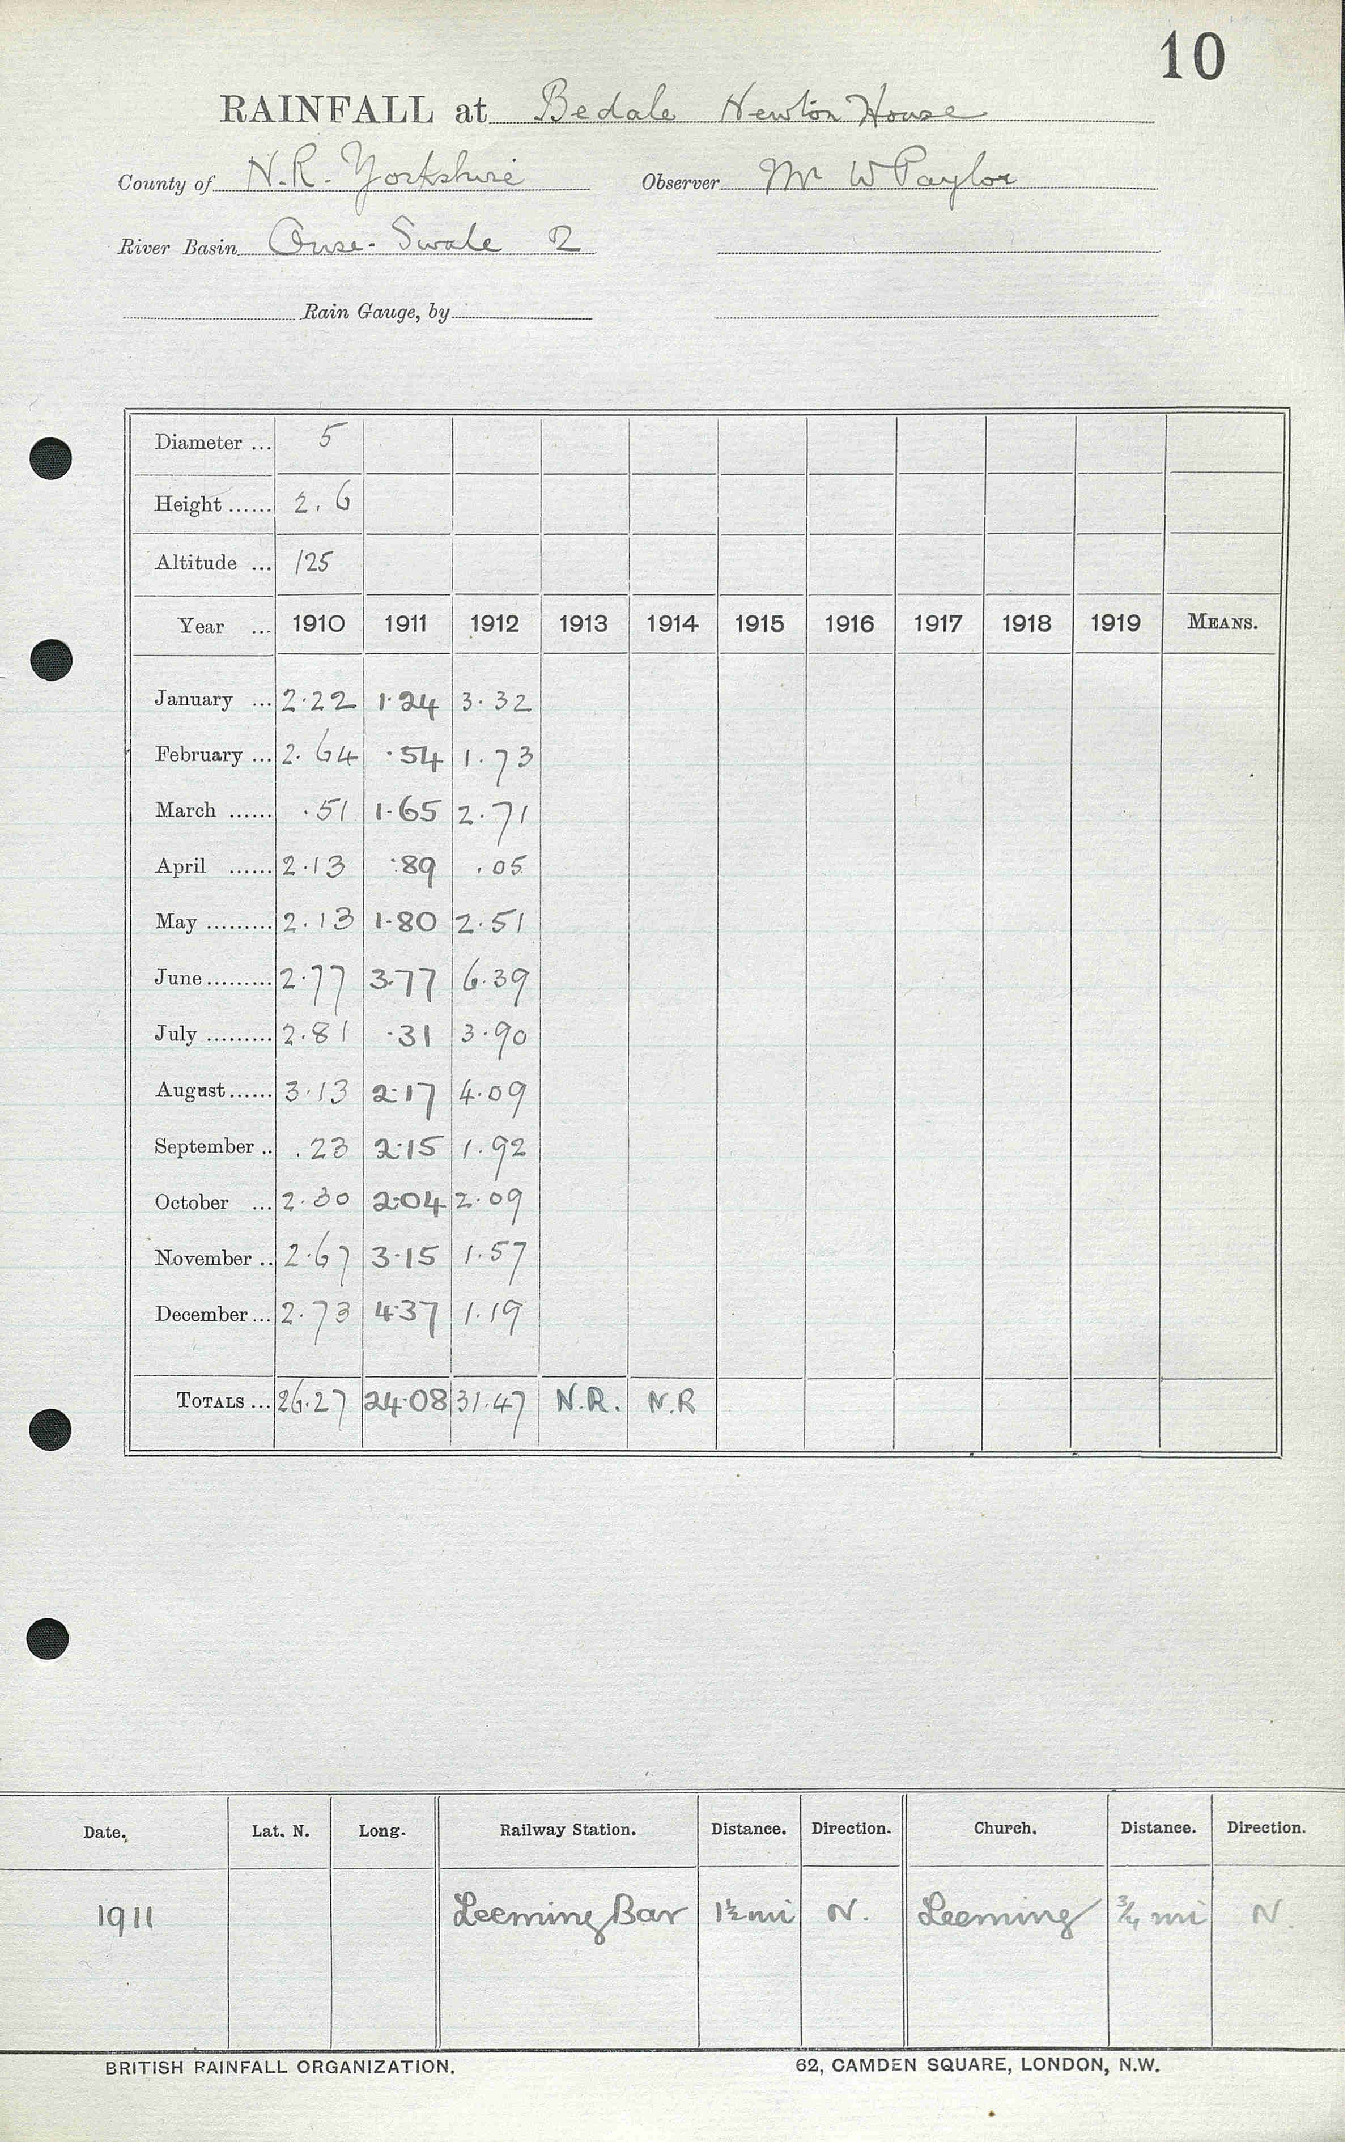 10
RAINFALL at Bedale Newton House
County of N.R. Yorkshire Observer Mr W Paylor
River Basin Ouse-Swale 2
Rain Gauge, by
Diameter ... 5
Height ...... 2.6
Altitude ... 125
Year ... 1910 1911 1912 1913 1914 1915 1916 1917 1918 1919 MEANS.
January ... 2.22 1.24 3.32
February ... 2.64 .54 1.73
March ...... .51 1.65 2.71
April ...... 2.13 .89 .05
May ......... 2.13 1.80 2.51
June ......... 2.77 3.77 6.39
July ......... 2.81 .31 3.90
August ...... 3.13 2.17 4.09
September .. .23 2.15 1.92
October ... 2.30 2.04 2.09
November .. 2.67 3.15 1.57
December ... 2.73 4.37 1.19
TOTALS ... 26.27 24.08 31.47 N.R. N.R
Date. Lat. N. Long. Railway Station. Distance. Direction. Church. Distance. Direction.
1911 Leeming Bar 1½ mi N. Leeming ¾ mi N.
BRITISH RAINFALL ORGANIZATION. 62, CAMDEN SQUARE, LONDON, N.W.